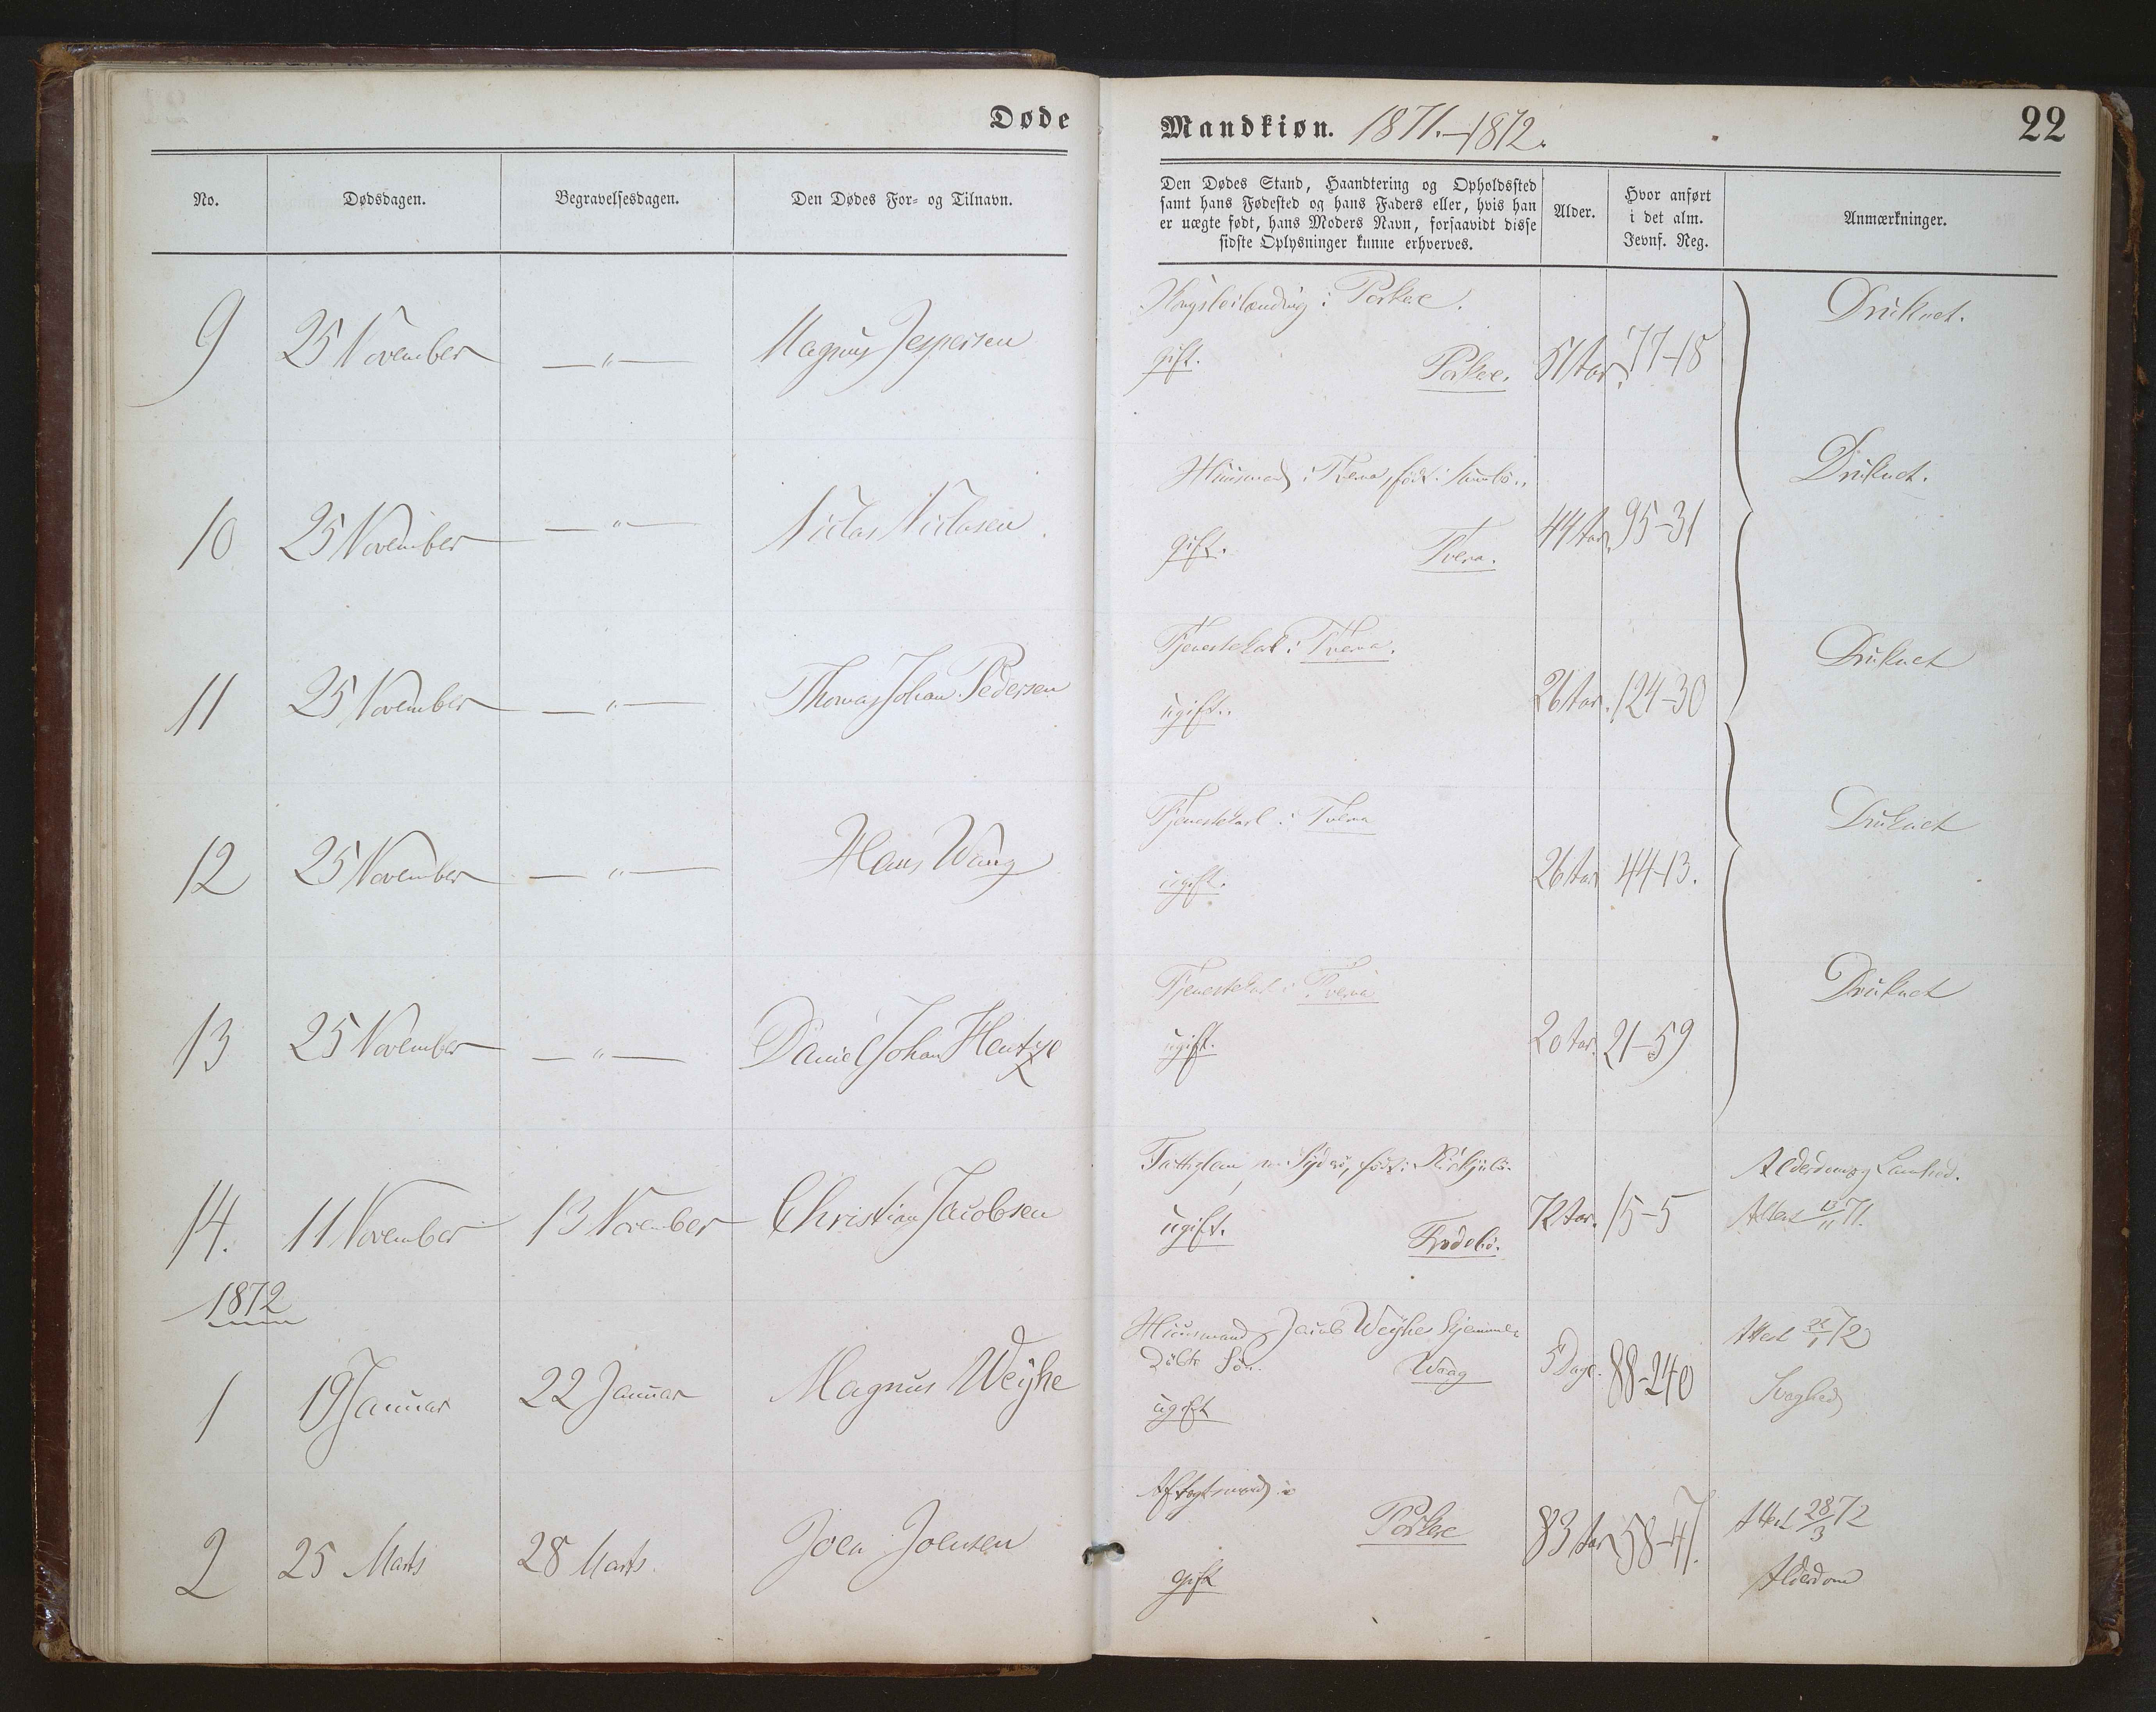 Døde
Mandkiøn. 1871.-1872.
22
No.
Dødsdagen.
Begravelsesdagen.
Den Dødes For- og Tilnavn.
Den Dødes Stand, Haandtering og Opholdssted
samt hans Fødested og hans Faders eller, hvis han
er uægte født, hans Moders Navn, forsaavidt disse
sidste Oplysninger kunne erhverves.
Alder.
Hvor anført
i det alm.
Jevnf. Reg.
Anmærkninger.
9 25 November — " — Magnus Jespersen
i Porkere.
gift. Porkere. 51 Aar. 77-18
Druknet.
10 25 November — " — Niclas Niclasen
Huusmand i Tvera, født i Sumbö.
gift. Tvera. 44 Aar. 95-31
Druknet.
11 25 November — " — Thomas Johan Pedersen
Tjenestekarl i Tvera.
ugift. 26 Aar. 124-30
Druknet
12 25 November — " — Hans Wang
Tjenestekarl i Tvera
ugift. 26 Aar 44-13.
Druknet
13 25 November — " — Daniel Johan Hentze
Tjenestekarl i Tvera
ugift. 20 Aar. 21-59
Druknet
14. 11 November 13 November Christian Jacobsen
Fattiglem, født i
ugift. Frodebö. 72 Aar. 15-5
Alderdom og
Attest 13/11 71.
1872
1 19 Januar 22 Januar Magnus Weyhe
Huusmand Jacob Weyhe hjemme
døbte Søn. Waag 5 Dage. 88-240
ugift
Attest 22/1 72
Svaghed
2 25 Marts 28 Marts. Joen Joensen
Aftægtsmand i
Porkere 83 Aar 58-47.
gift
Attest 28/3 72
Alderdom